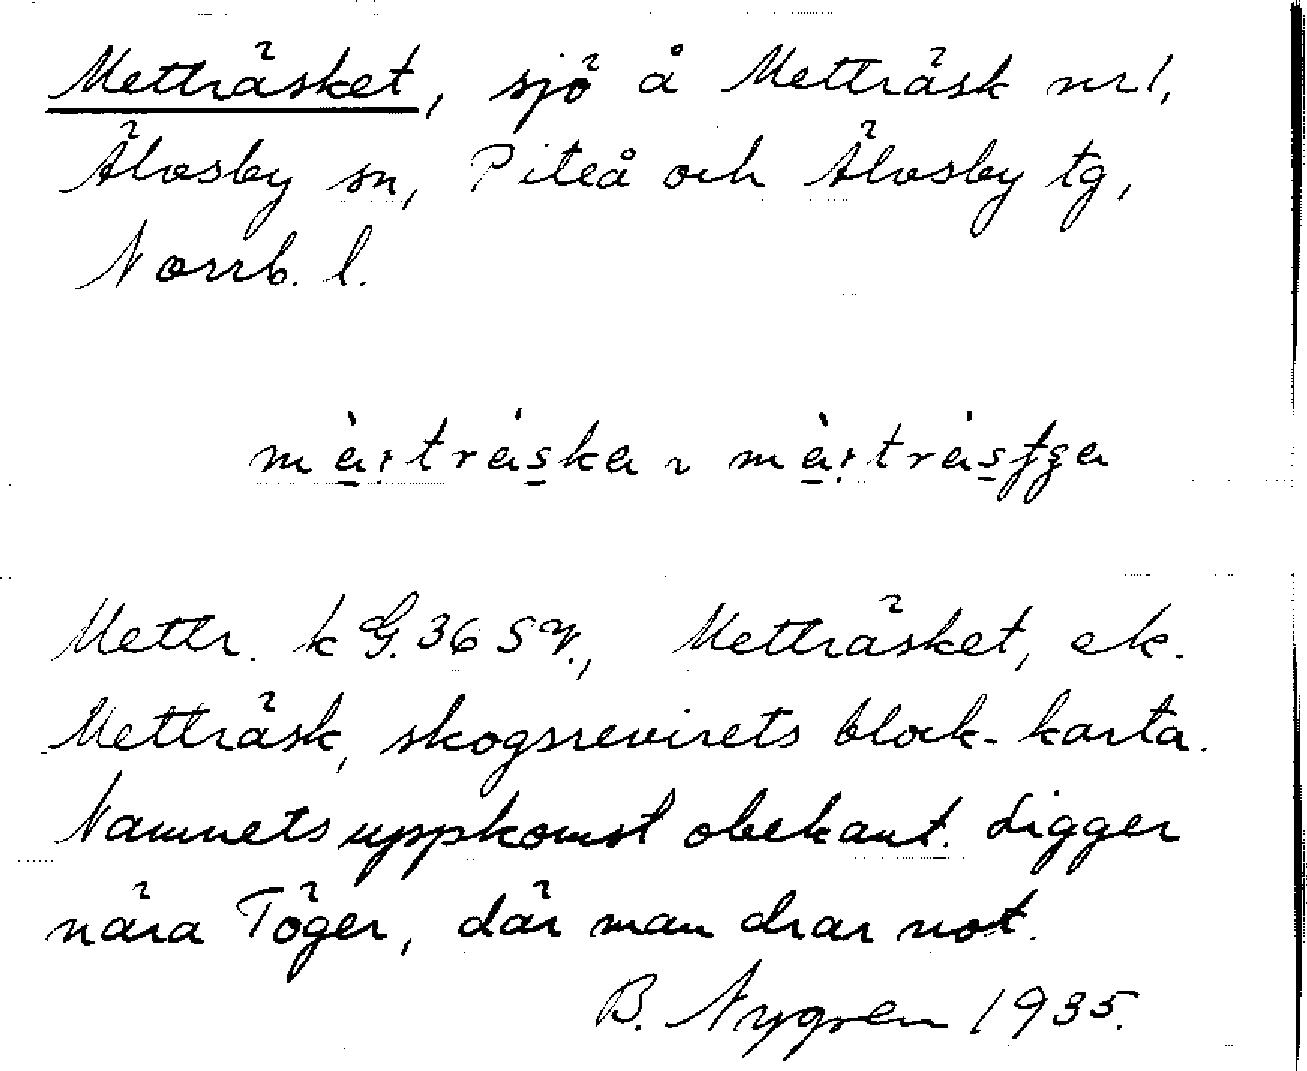 Metträsket, sjö å Metträsk nr 1,
Älvsby sn, Piteå och Älvsby tg,
Norrb. l.
Mettr. k G. 36 SV., Metträsket, ek.
Metträsk, skogsrevirets block-karta.
Namnets uppkomst obekant. Ligger
nära Töger, där man drar not.
B. Nygren 1935.